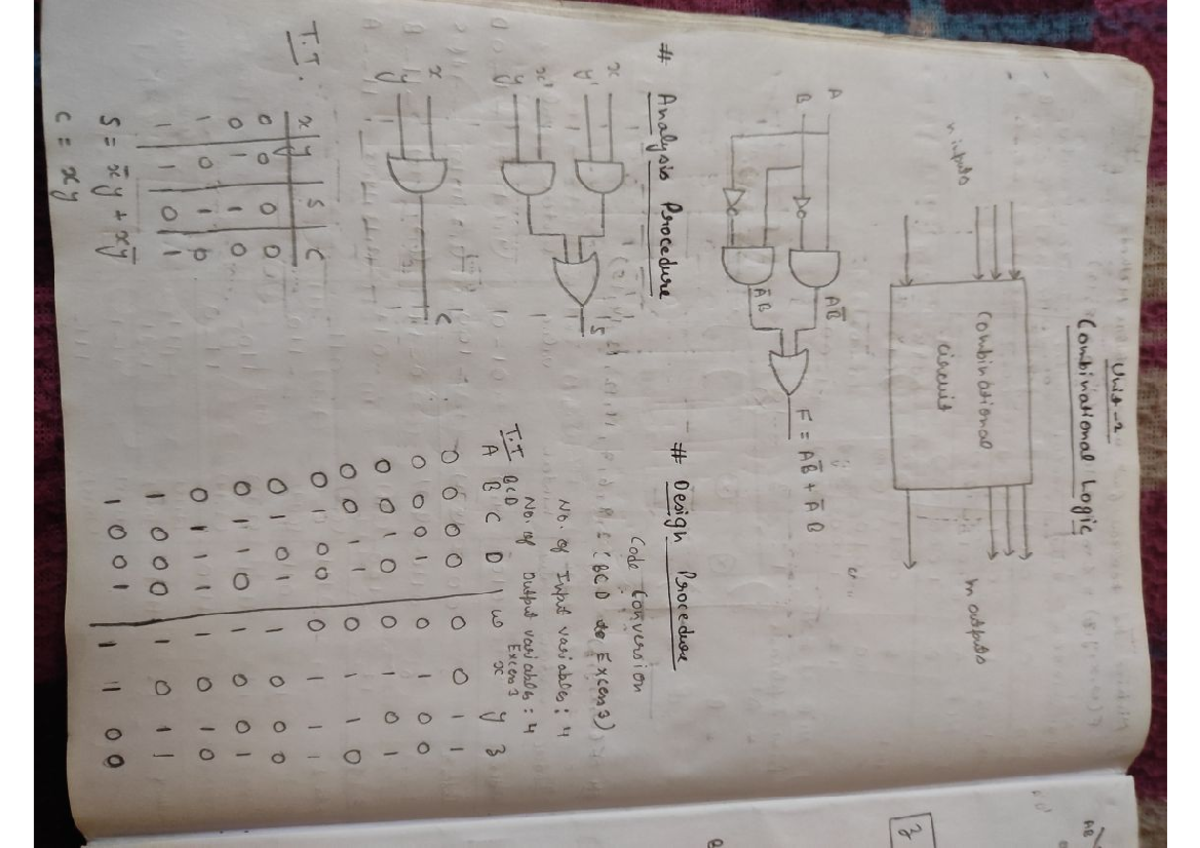 Unit-2
Combinational Logic
n inputs
Combinational
circuit
m outputs
A
B
AB̅
A̅B
F = AB̅ + A̅B
# Analysis Procedure
x
y'
x'
y
S
x
y
C
T.T.
x y S C
0 0 0 0
0 1 1 0
1 0 1 0
1 1 0 1
S = x̅y + xy̅
C = xy
# Design Procedure
Code Conversion
(BCD to Excess 3)
No. of Input variables: 4
No. of Output variables: 4
T.T BCD Excess 3
A B C D w x y z
0 0 0 0 0 0 1 1
0 0 0 1 0 1 0 0
0 0 1 0 0 1 0 1
0 0 1 1 0 1 1 0
0 1 0 0 0 1 1 1
0 1 0 1 1 0 0 0
0 1 1 0 1 0 0 1
0 1 1 1 1 0 1 0
1 0 0 0 1 0 1 1
1 0 0 1 1 1 0 0
AB